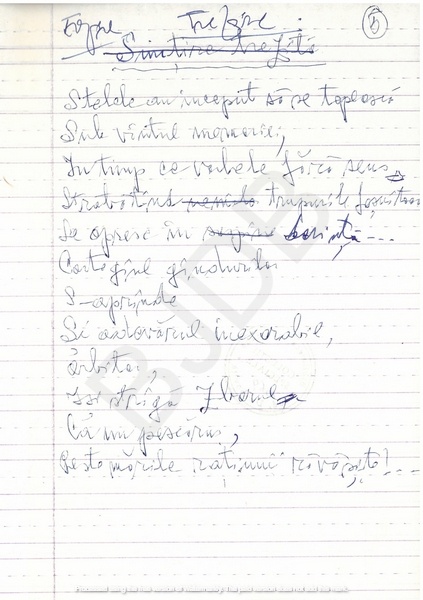 Trezire: 5
Simțire trezită
Stelele au inceput să se topească
Sub vîntul memoriei,
In timp ce vorbele fără sens
Străbătînd trupurile
Se opresc în
Cortegiul gîndurilor
S-aprinde
Și adevărul inexorabil,
Arbitru,
Isi strigă Zborul
Ca un pescăruș,
Peste mările rațiunii răvășite!...
BJDB